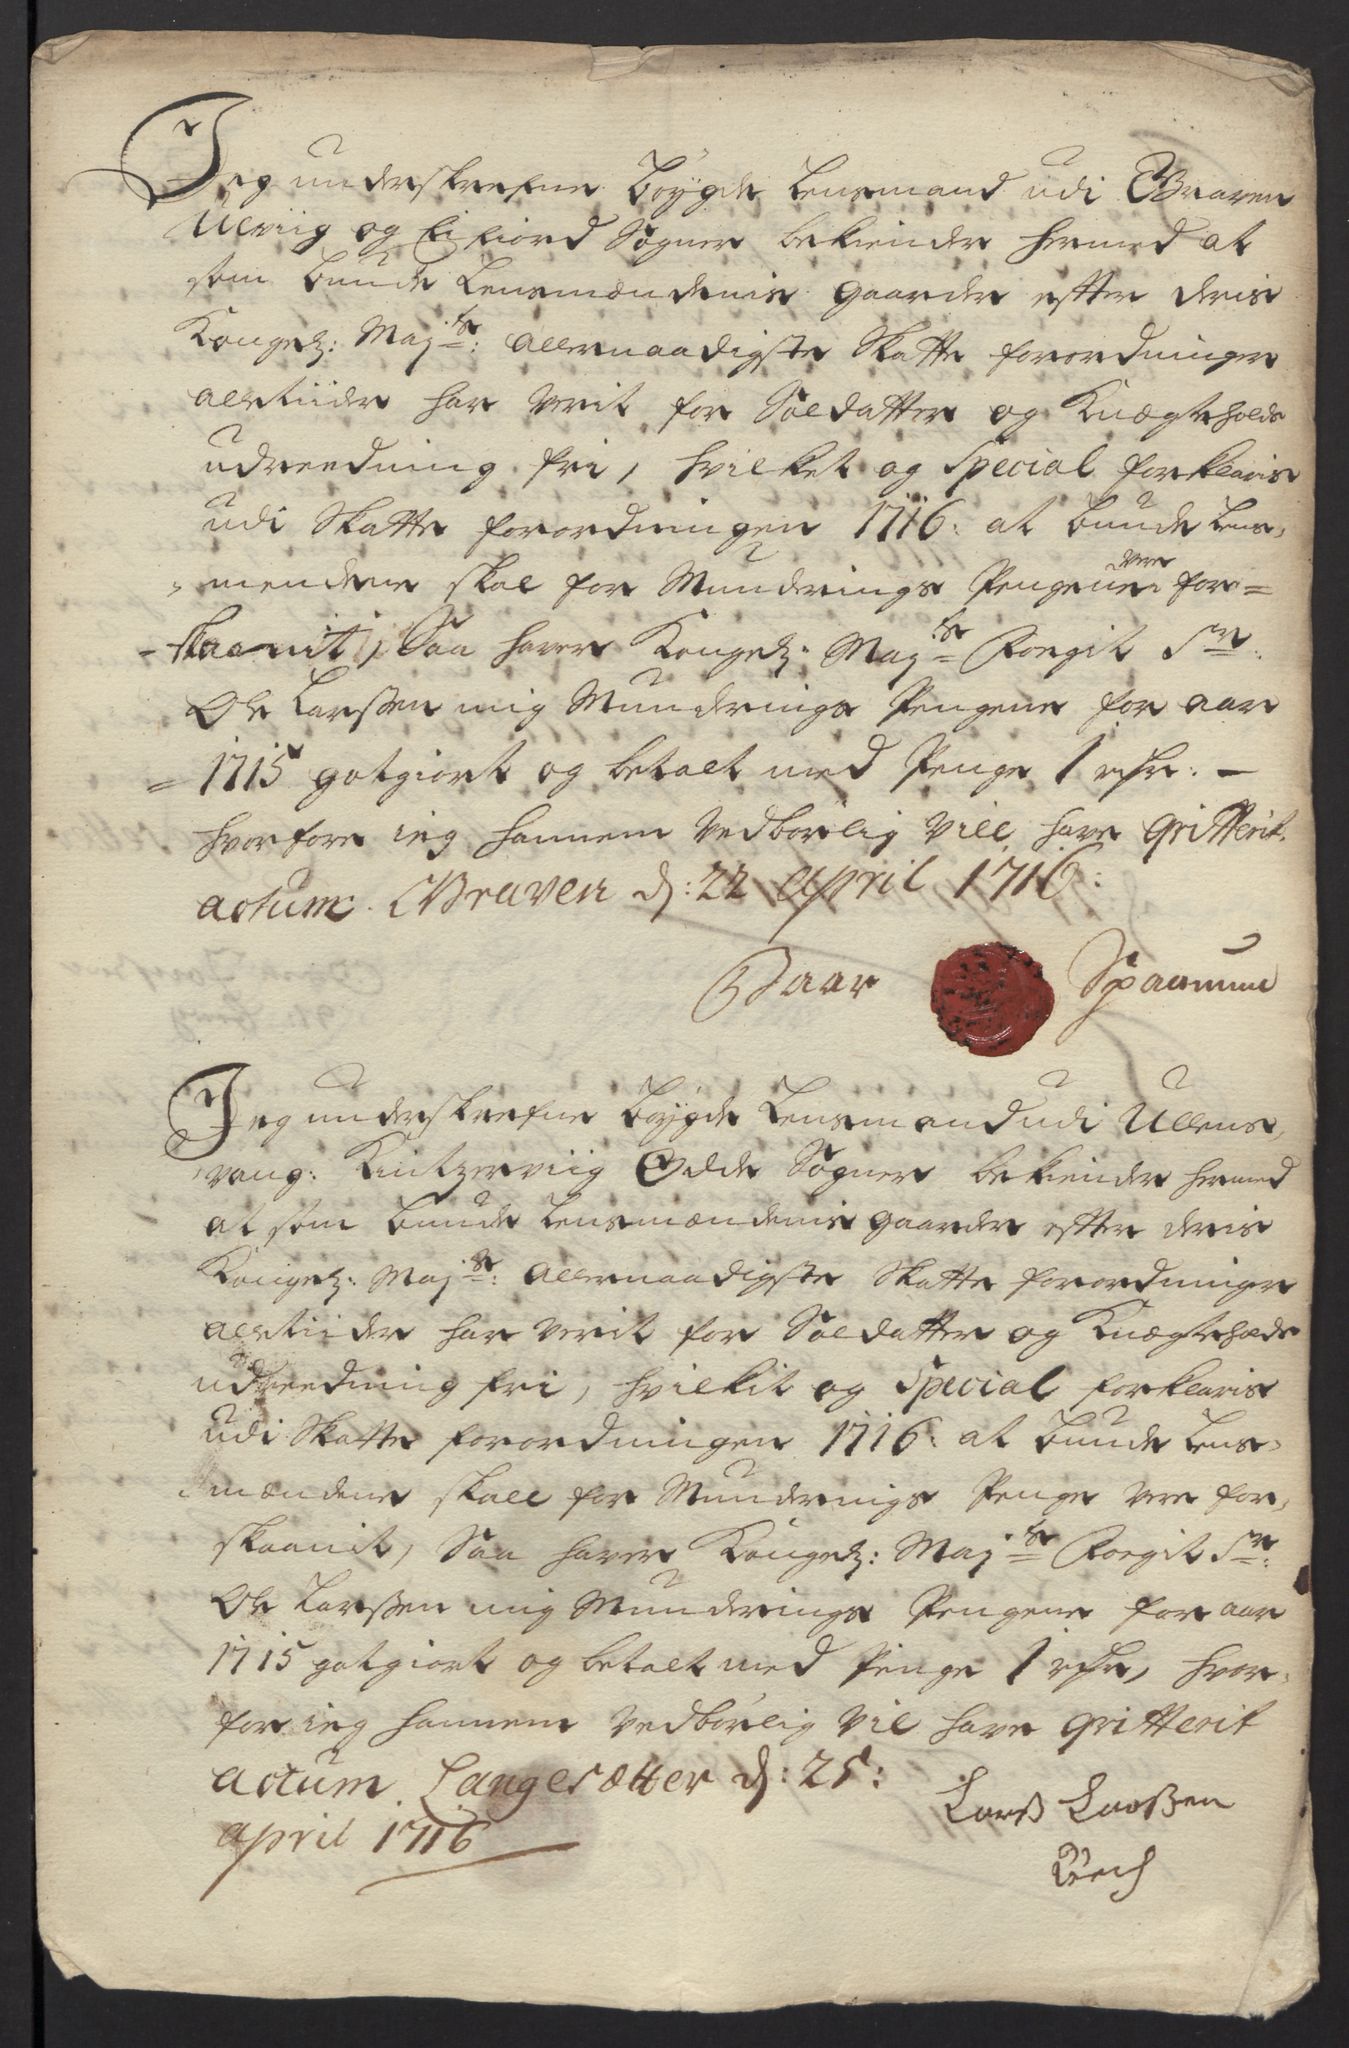 Jeg underskrefne Bøygde Lensmand udi Graven
Ulviig og Eifiord Sogner bekiender hermed at
som bunde Lensmændenis gaarder effter deris
Kongel: Maj:ts: allernaadigste Skatte forordninger
alletiider har verit for Soldatter og Knægteholds
udreedning fri, hvilket og Special forklaris
udi Skatte forordningen 1716: at bunde Lens,
mendene skal for Munderings Pengene vere for=
skaanit, Saa haver Kongel: Maj:ts Foegit Sr:
Ole Larssen mig Munderings Pengene for aar
1715 gotgiort og betalt med Penge 1 rdr: -
hvorfore ieg hannem Vedbørlig vill have qvitterit.
actum. Graven d: 22 April 1716:
Baar Spaanum
Jeg underskrefne Bøygde Lensmand udi Ullens,
vang: Kintzerviig Odde Sogner bekiender hermed
at som bunde Lensmændenis gaarder effter deris
Kongel: Maj:ts: allernaadigste Skatte forordninger
alletiider har verit for Soldatter og Knægteholds
udreedning fri, hvilkit og Special forklaris
udi Skatte forordningen 1716: at bunde Lens,
mændene skall for Munderings Penge vere for,
skaanit, Saa haver Kongel: Maj:ts Foegit Sr:
Ole Larssen mig Munderings Pengene for aar
1715 gotgiort og betalt med Penge 1 rdr, hvor,
for ieg hannem Vedbørlig vil have qvitterit
actum. Langesætter d: 25:
april 1716
Larss Larssen